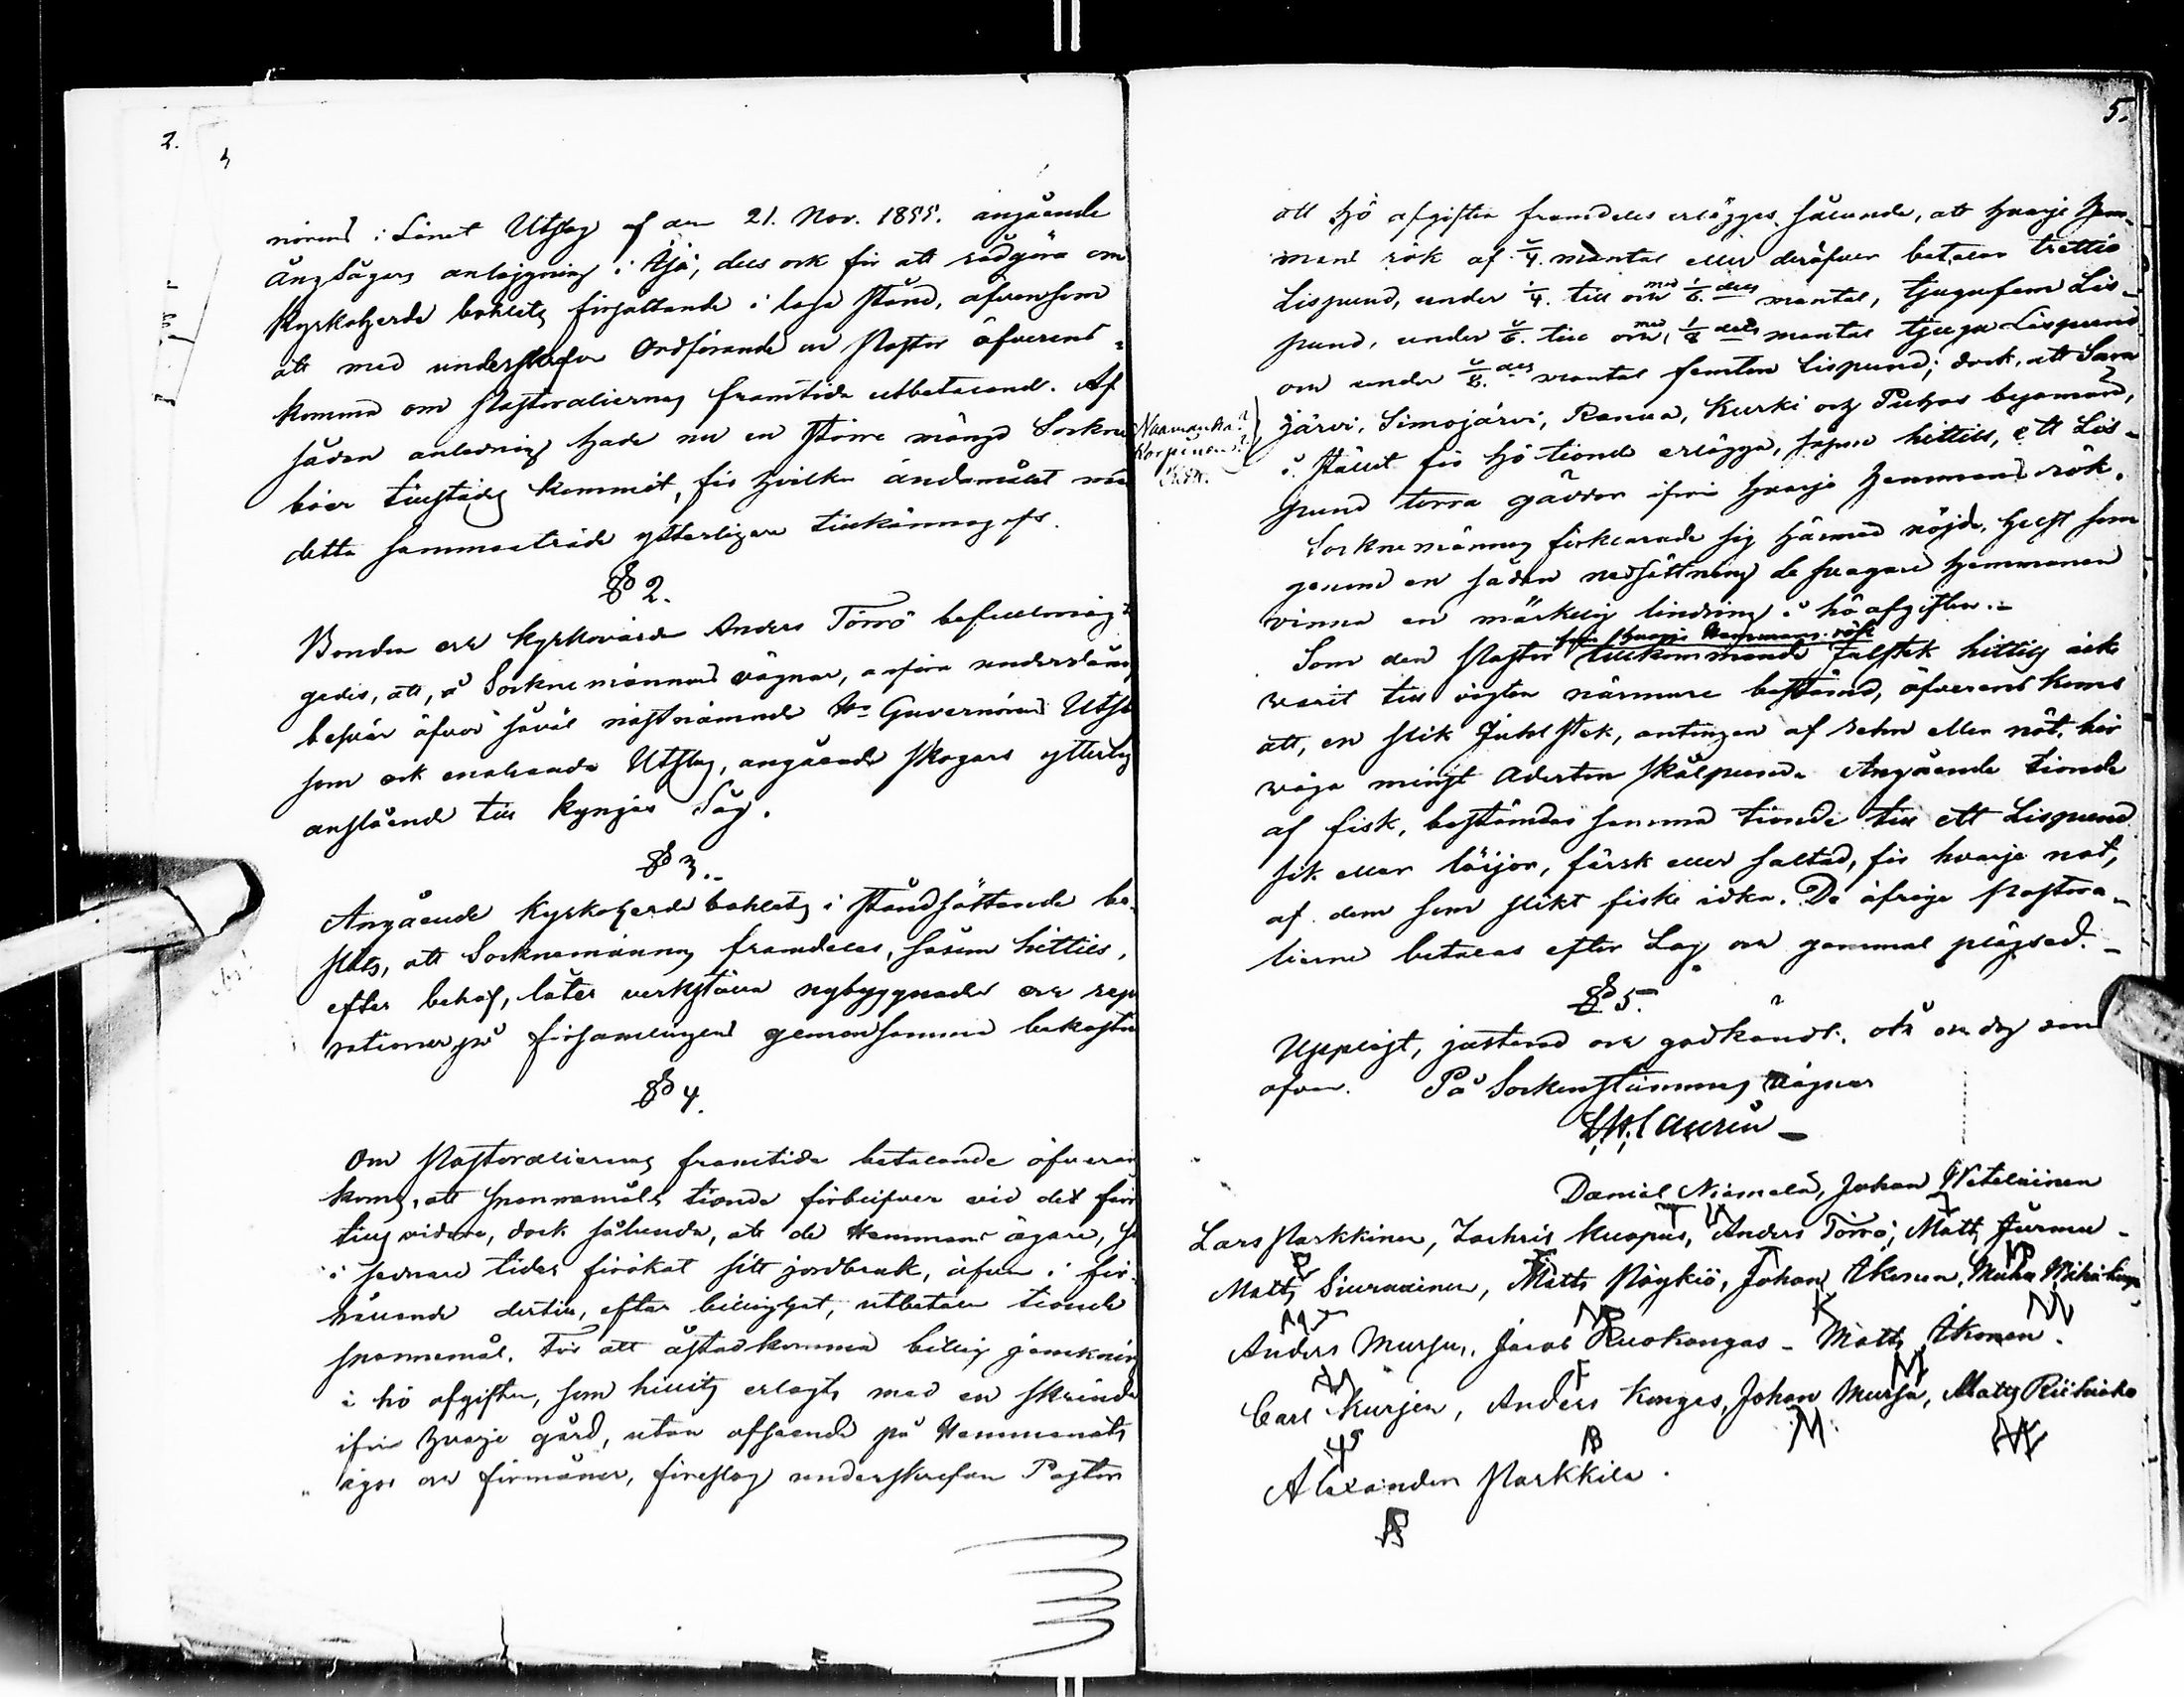 2.
4
nörens i Länet Utslag af den 21. Nov. 1855. angående
ångsågers anläggning i Äjö, dels ock för att rådgöra om
Kyrkoherde bohlets försättande i laga stånd, äfvensom
att med underskrefvne Ordförande ock Pastor öfverens-
komma om Pastoraliernas framtida utbetalande. Af
sådan anledning hade nu en större mängd Sockne
boer tillstädes kommit, för hvilka ändamålet med
detta sammanträde ytterligare tillkännagafs.
§ 2.
Bonden ock kyrkovärden Anders Törrö befullmäg
gades, att, å Socknemännens vägnar, anföra underdånig
besvär öfver såväl nästnämnde Hr Guvernörens Utsl
som ock enahanda Utslag, angående skogars ytterlig
anslående till Kyngäs Såg.
§ 3.
Angående Kyrkoherdebohlets i ståndsättande be-
slöts, att Socknemännen framdeles, såsom hittills,
efter behof, låter verkställa nybyggnader ock repa
rationer på församlingens gemensamma bekostn
§ 4.
Om Pastoraliernas framtida betalande öfverens
koms, att spannmåls tionde förblifver vid det förr
tills vidare, dock sålunda, att de Hemmans ägare, so
i sednare tider förökat sitt jordbruk, äfven i för-
hållande dertill, efter billighet, utbetala tionde
spannemål. För att åstadkomma billig jämkning
i hö afgiften, som hittills erlagts med en skrinda
ifrån hvarje gård, utan afseende på Hemmanets
ägor ock förmåner, föreslog underskrefven Pastor
5.
att hö afgiften framdeles erlägges sålunda, att hvarje Hem-
mans rök af 1/4. mantal eller deröfver betalar trettio
Lispund, under 1/4. till ock med 1/6. dels mantal, tjugufem Lis-
pund, under 1/6. till ock med 1/8 dels mantal tjugu Lispund
ock under 1/8. dels mantal femton Lispund; dock, att Sara
järvi, Simojärvi, Ranua, Kurki och Puhos byamän,
Naamanka?
Korpinen?
i stället för hö tionde erlägga, såsom hittills, ett Lis-
pund torra gäddor ifrån hvarje Hemmans rök.
Socknemännen förklarade sig härmed nöjde, helst som
genom en sådan nedsättning de svagare Hemmanen
vinna en märkelig lindring i hö afgiften.-
från hvarje Hemmans rök
Som den Pastor tillkommande Julstek hittills icke
varit till vigten närmare bestämd, öfverens koms
att, en slik Juhlstek, antingen af rehn eller nöt, bör
väga minst Aderton skålpund. Angående tionde
af fisk, bestämdes samma tionde till ett Lispund
sik eller löijor, färsk eller saltad, för hvarje not,
af dem som slikt fiske idka. De öfriga Pastora-
lierne betalas efter Lag ock gammal plägsed. -
§ 5.
Uppläst, justerad ock godkändt. År ock dag som
ofvan. På Sockenstämmans vägnar
L.H. Laurin -
Daniel Niemelä, Johan Weteläinen
Lars Parkkinen, Zachris Kuopus, Anders Törrö, Matts Jurmu -
Matts Siuruainen, Matts Pöykiö, Johan Akonen,
Anders Mursu, Jacob Ruokangas - Matts Akonen.
Carl Kurjen, Anders Kongas, Johan Mursu, Matts Riihiaho
Alexander Parkkila.